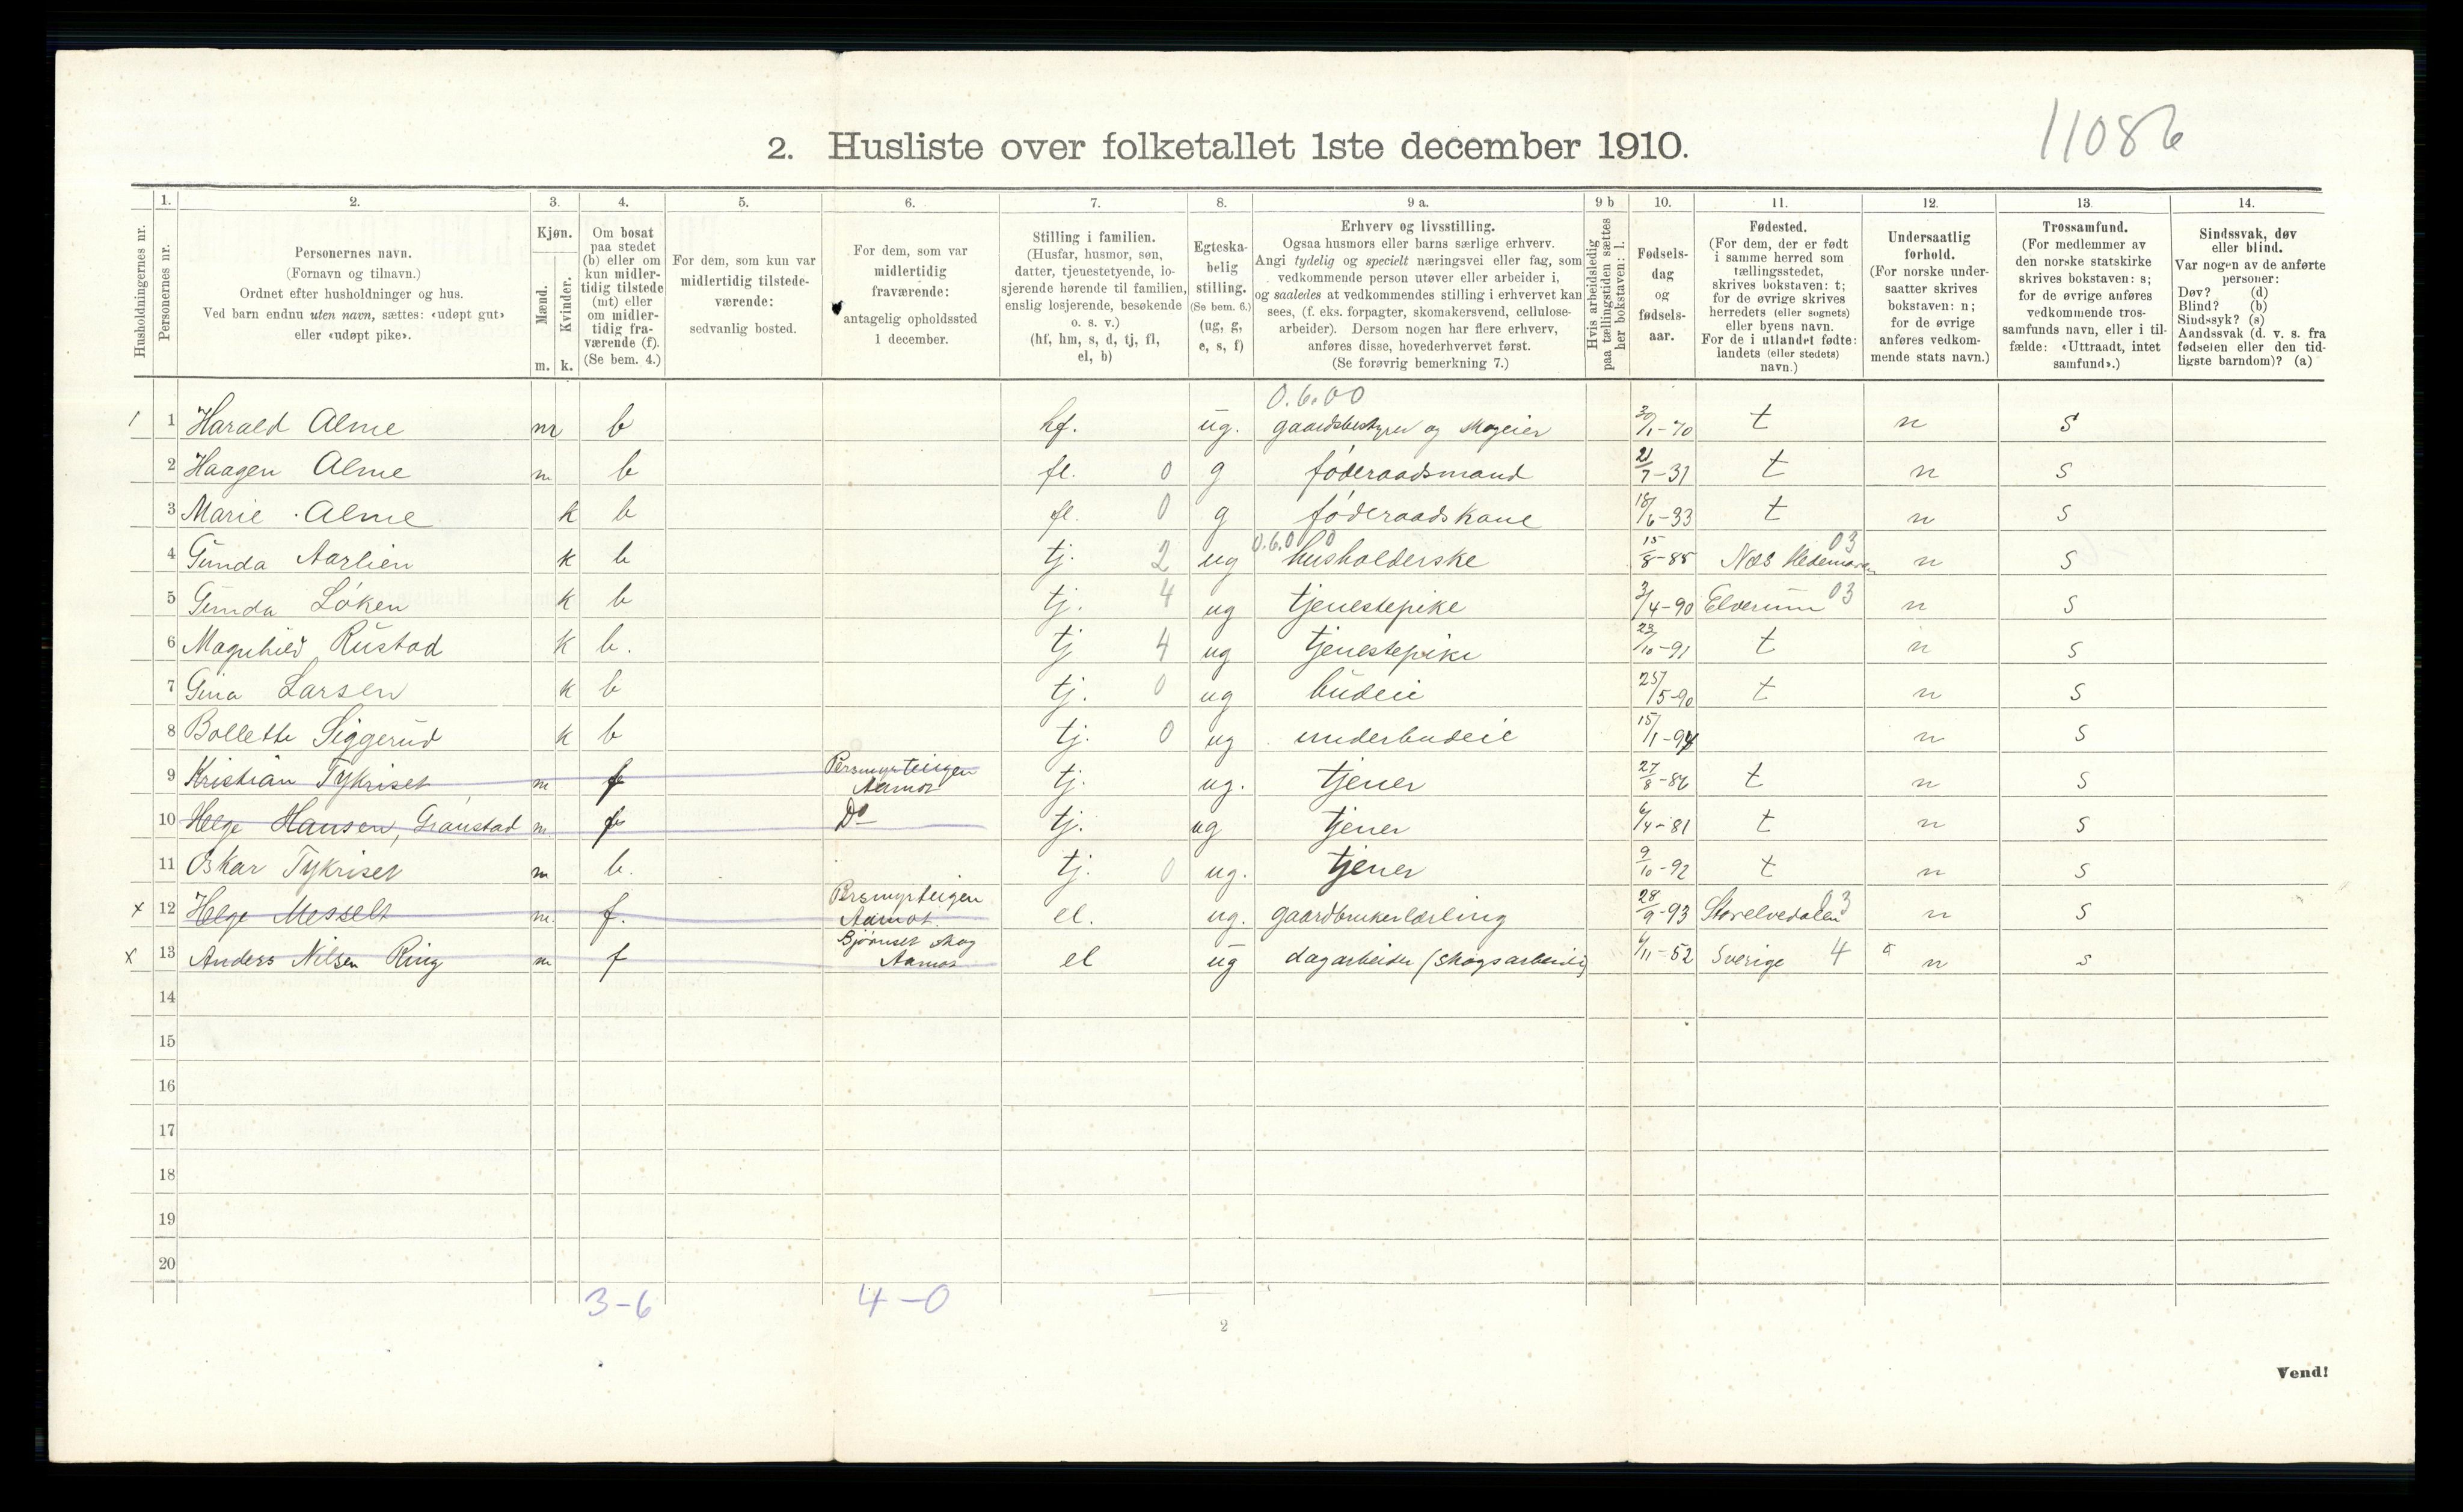 11086
2. Husliste over folketallet 1ste december 1910.
Husholdningernes nr.
1.
Personernes nr.
2.
Personernes navn.
(Fornavn og tilnavn.)
Ordnet efter husholdninger og hus.
Ved barn endnu uten navn, sættes: «udøpt gut»
eller «udøpt pike».
3.
Kjøn.
Mænd.
Kvinder.
m. k.
4.
Om bosat
paa stedet
(b) eller om
kun midler-
tidig tilstede
(mt) eller
om midler-
tidig fra-
værende (f).
(Se bem. 4.)
5.
For dem, som kun var
midlertidig tilstede-
værende:
sedvanlig bosted.
6.
For dem, som var
midlertidig
fraværende:
antagelig opholdssted
1 december.
7.
Stilling i familien.
(Husfar, husmor, søn,
datter, tjenestetyende, lo-
sjerende hørende til familien,
enslig losjerende, besøkende
o. s. v.)
(hf, hm, s, d, tj, fl,
el, b)
8.
Egteska-
belig
stilling.
(Se bem. 6.)
(ug, g,
e, s, f)
9 a.
Erhverv og livsstilling.
Ogsaa husmors eller barns særlige erhverv.
Angi tydelig og specielt næringsvei eller fag, som
vedkommende person utøver eller arbeider i,
og saaledes at vedkommendes stilling i erhvervet kan
sees, (f. eks. forpagter, skomakersvend, cellulose-
arbeider). Dersom nogen har flere erhverv,
anføres disse, hovederhvervet først.
(Se forøvrig bemerkning 7.)
9 b
Hvis arbeidsledig
paa tællingstiden sættes
her bokstaven: l.
10.
Fødsels-
dag
og
fødsels-
aar.
11.
Fødested.
(For dem, der er født
i samme herred som
tællingsstedet,
skrives bokstaven: t;
for de øvrige skrives
herredets (eller sognets)
eller byens navn.
For de i utlandet fødte:
landets (eller stedets)
navn.)
12.
Undersaatlig
forhold.
(For norske under-
saatter skrives
bokstaven: n;
for de øvrige
anføres vedkom-
mende stats navn.)
13.
Trossamfund.
(For medlemmer av
den norske statskirke
skrives bokstaven: s;
for de øvrige anføres
vedkommende tros-
samfunds navn, eller i til-
fælde: «Uttraadt, intet
samfund».)
14.
Sindssvak, døv
eller blind.
Var nogen av de anførte
personer:
Døv? (d)
Blind? (b)
Sindssyk? (s)
Aandssvak (d. v. s. fra
fødselen eller den tid-
ligste barndom)? (a)
0.6.00
1 1 Harald Alme m b hf. ug. gaardsbestyrer og skogeier 30/1-70 t n s
2 Haagen Alme m b fl. 0 g føderaadsmand 21/7-31 t n s
3 Marie Alme k b fl. 0 g føderaadskone 18/6-33 t n s
0.6.0 0 03
4 Gunda Aarlien k b tj. 2 ug husholderske 15/8-85 Næs Hedemarken n s
5 Gunda Løken k b tj. 4 ug tjenestepike 3/4-90 Elverum 03 n s
6 Magnhild Rustad k b. tj 4 ug tjenestepike 23/10-91 t n s
7 Gina Larsen k b tj. 0 ug budeie 25/5-90 t n s
8 Bollette Siggerud k b tj. 0 ug underbudeie 15/1-94 n s
9 Kristian Tykriset m f Persmyrteigen Aamot tj. ug. tjener 27/8-86 t n s
10 Helge Hansen, Granstad m. f Do tj. ug tjener 6/4-81 t n s
11 Oskar Tykriset m b. tj. 0 ug. tjener 9/10-92 t n s
x 12 Helge Messelt m. f. Persmyrteigen Aamot. el. ug. gaardbrukerlærling 28/9-93 Storelvedalen 03 n s
x 13 Anders Nilsen Ring m f Bjørnset skog Aamot el ug dagarbeider (skogsarbeide) 6/11-52 Sverige 4 n s
14
15
16
17
18
19
20
3-6 4-0
2
Vend!